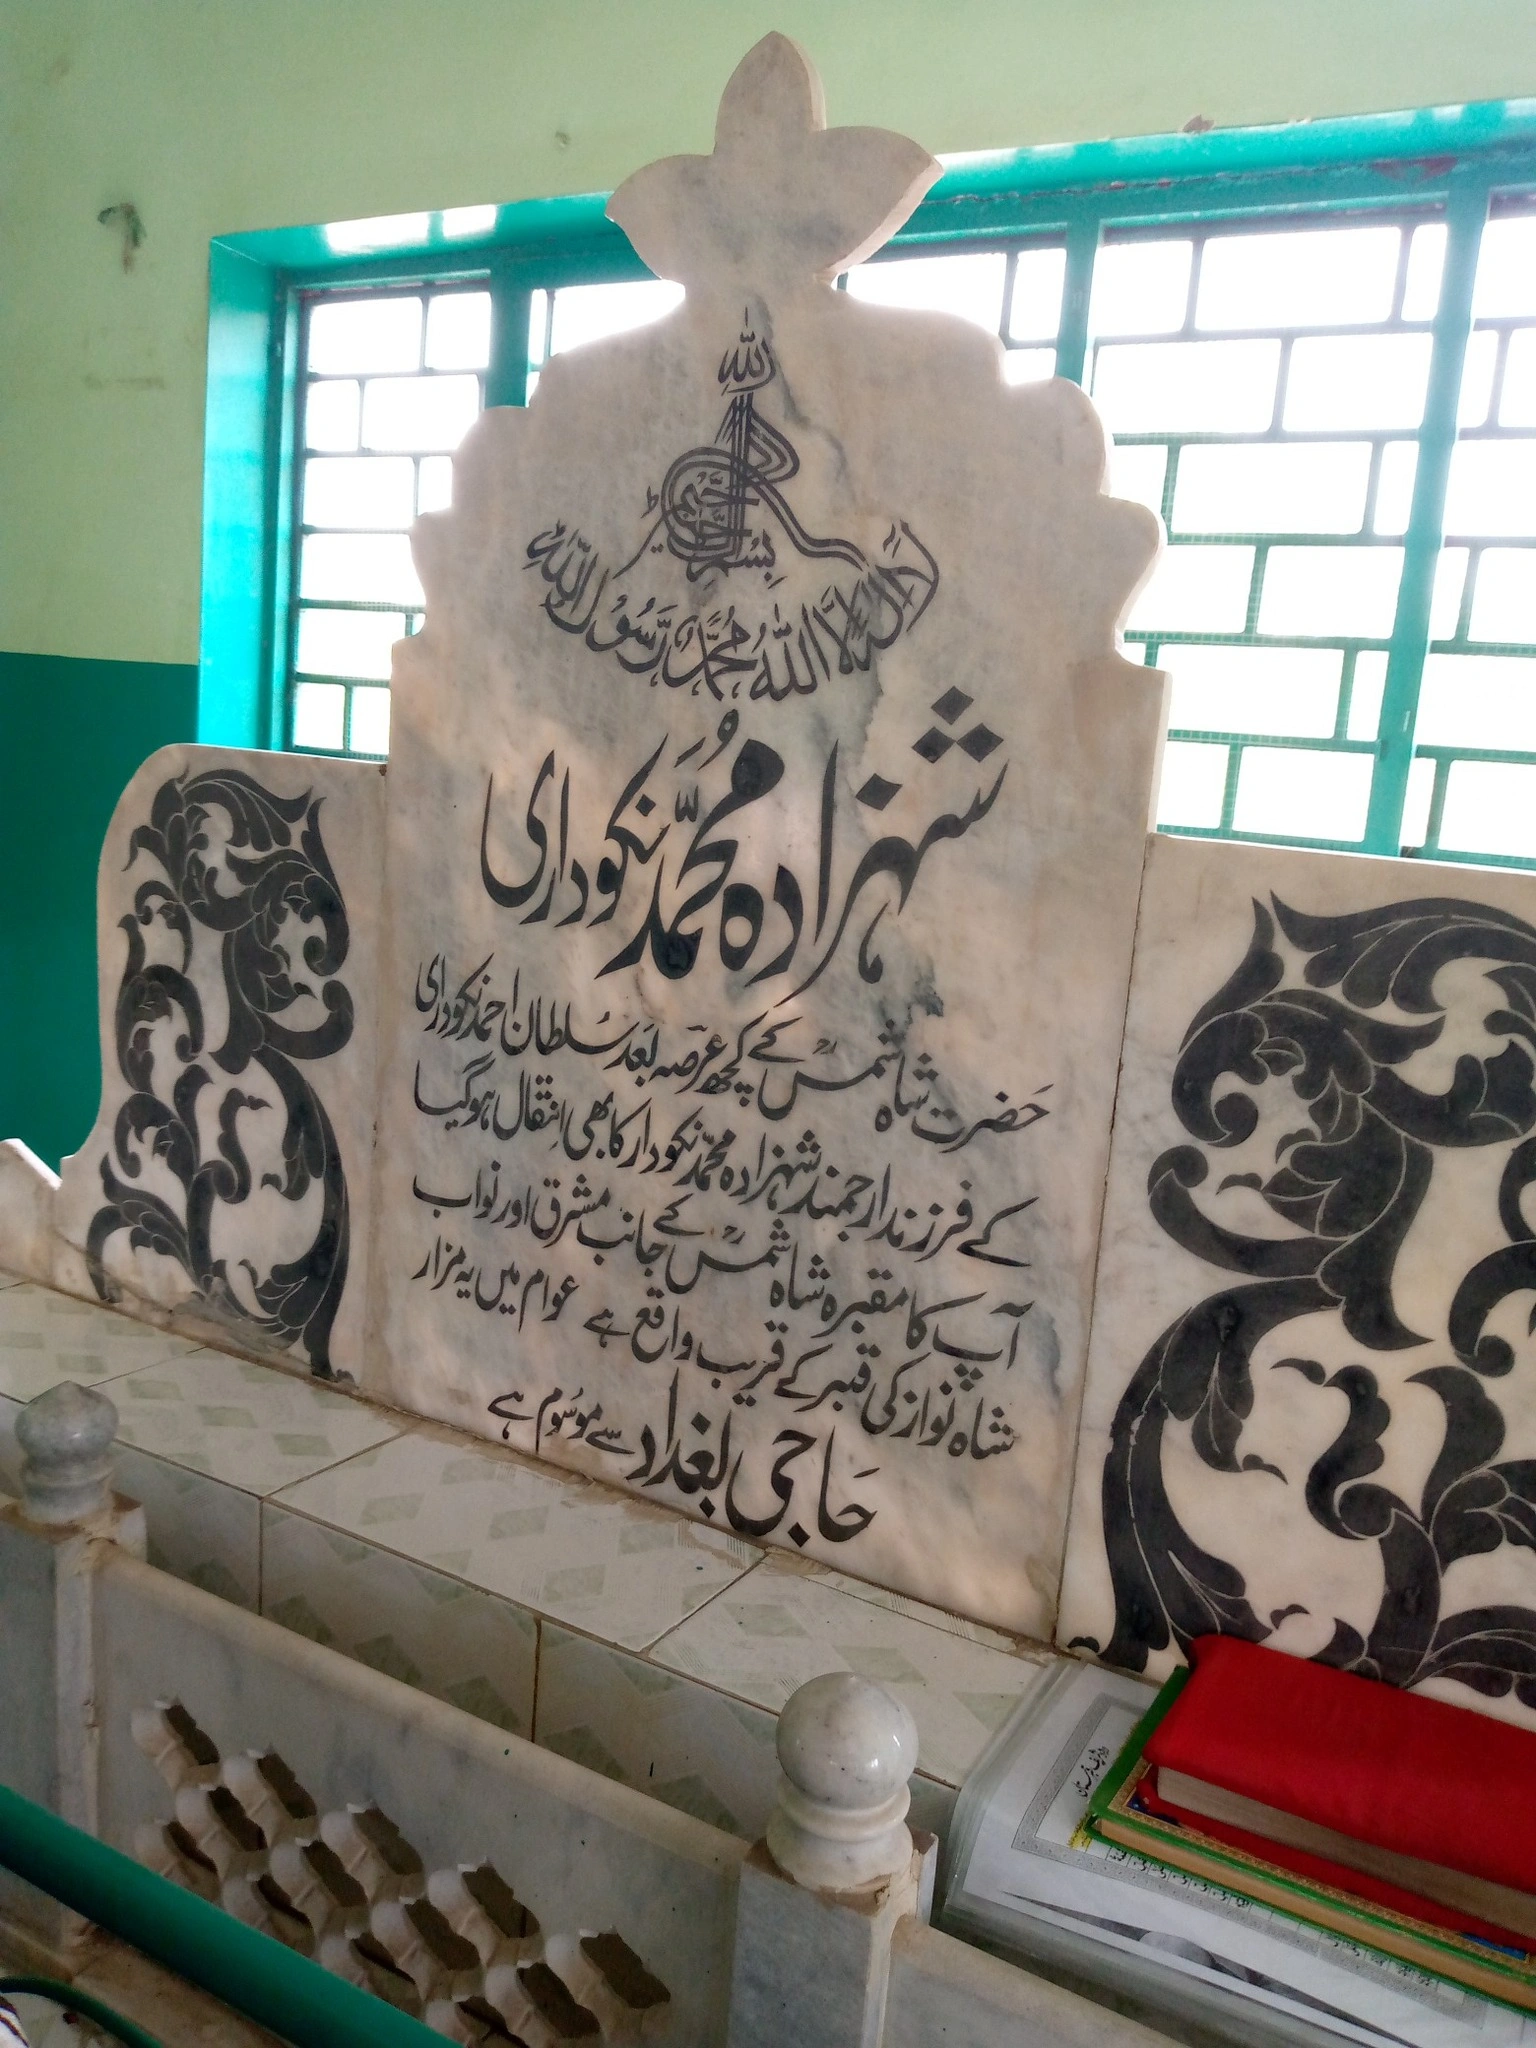 اللہ
بِسْمِ اللہ الرحمٰن الرحیم
لَا اِلٰہَ اِلَّا اللہُ مُحَمَّدٌ رَّسُوْلُ اللہِ
شہزادہ مُحمّد نکوداری
حَضرت شاہ شمسؒ کے کچھ عرصہ بَعد سُلطان احمد نکوداری
کے فرزند ارجمند شہزادہ محمّد نکودار کا بھی اِنتقال ہوگیا
آپ کا مقبرہ شاہ شمسؒ کے جانب مشرق اور نواب
شاہ نواز کی قبر کے قریب واقع ہے عوام میں یہ مزار
حَاجی بغداد سے موسُوم ہے